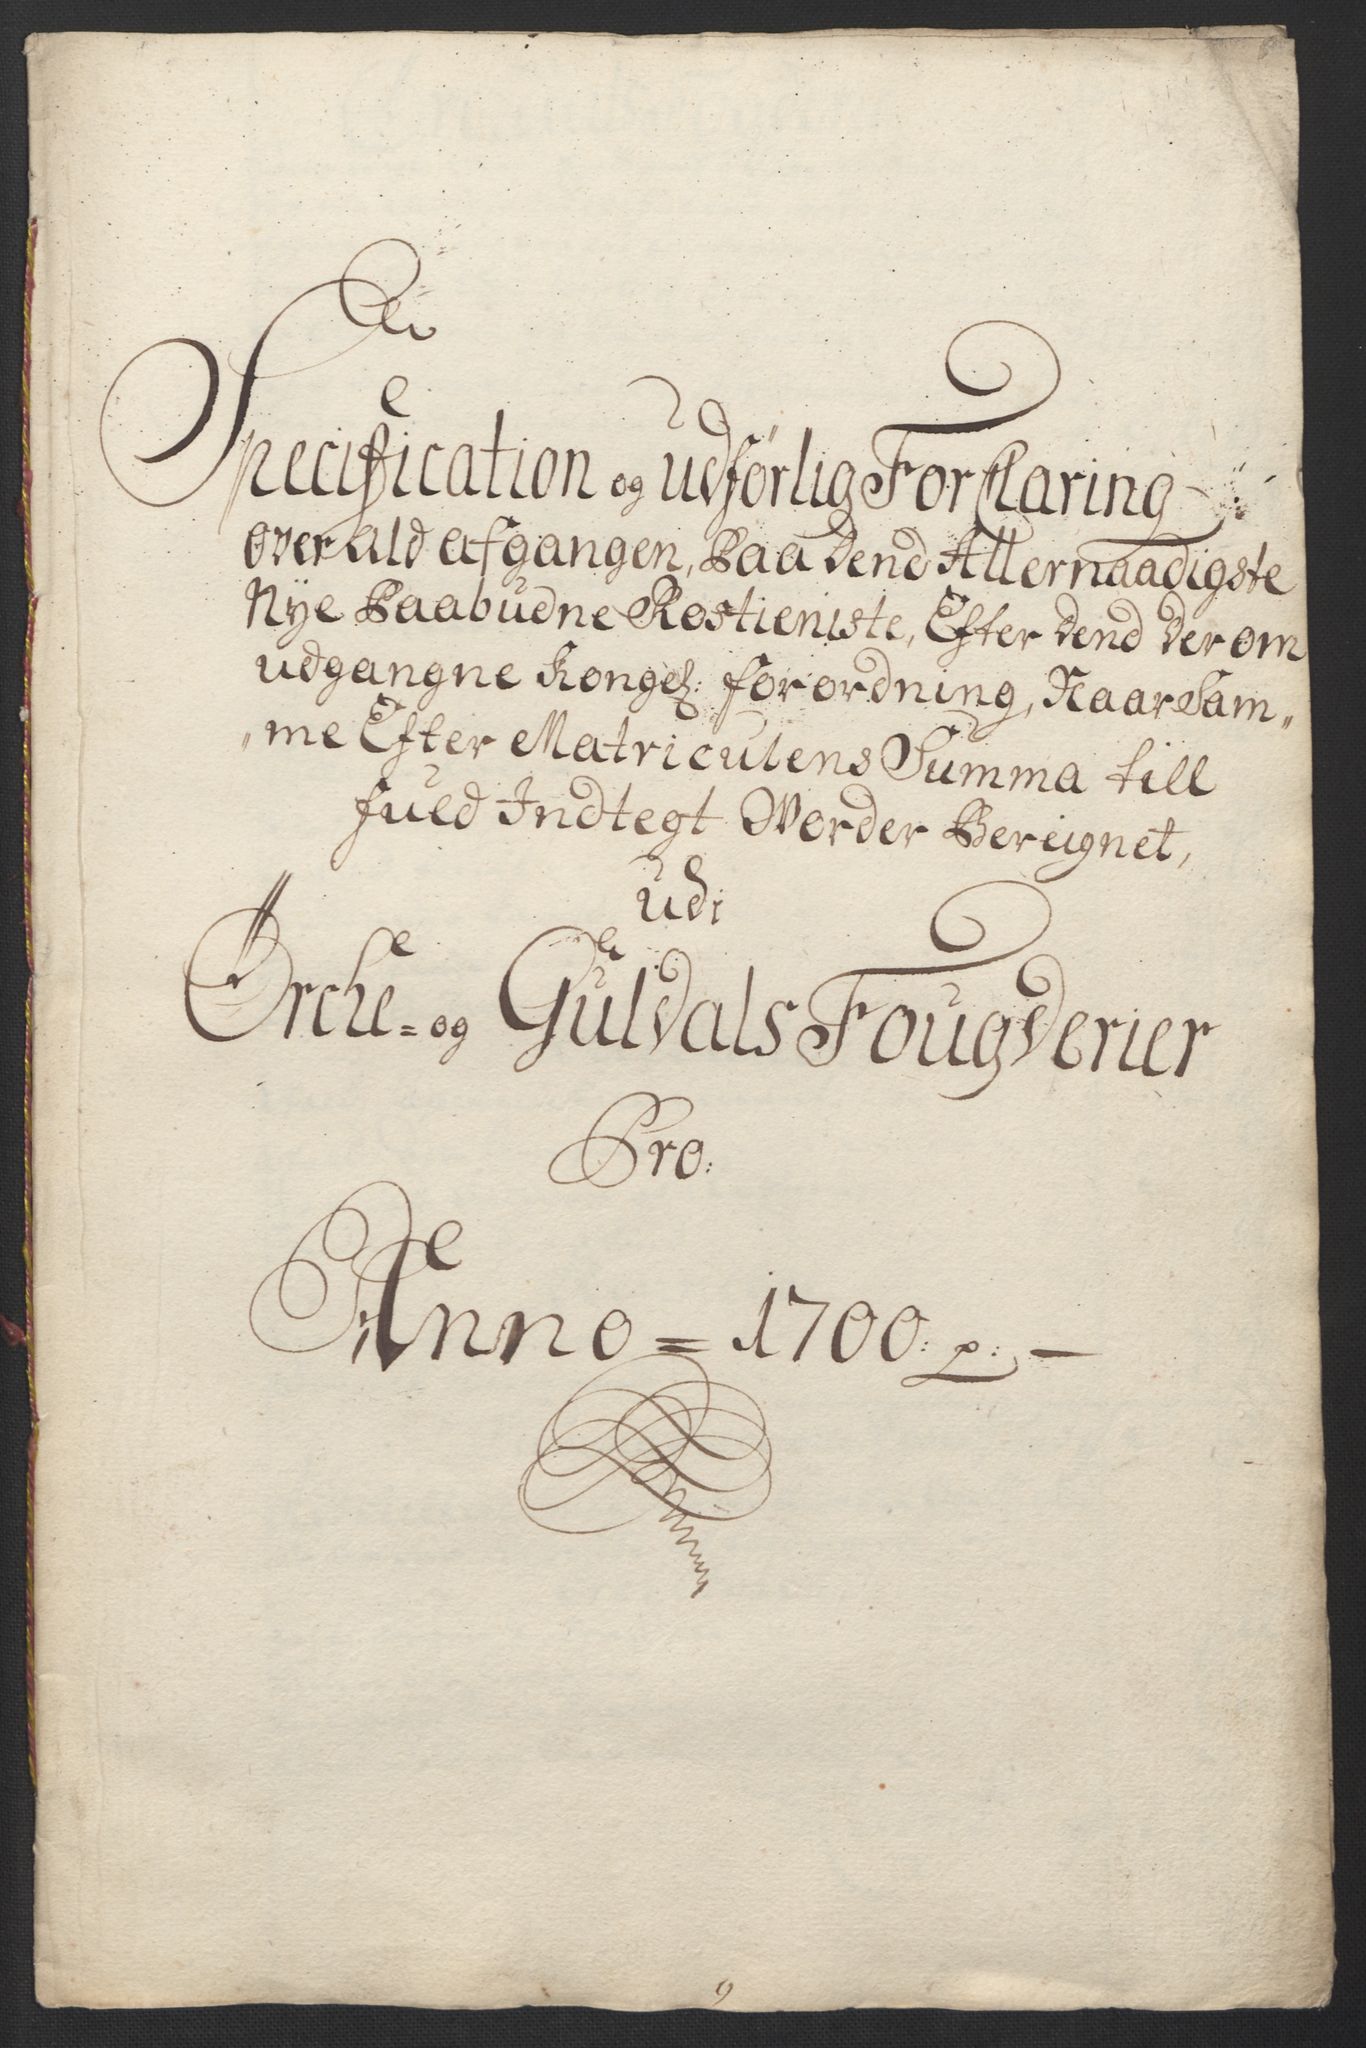 Specification og udførlig Forclaring
over ald afgangen, Paa dend Allernaadigste
Nye Paabudne Rostieniste, Efter dend der om
udgangne Kongel: forordning, Naar Sam„
„me Efter Matriculens Summa till
fuld Indtegt Worder Bereignet,
udi
Ørche= og Guldals Fougderier
Pro:
Anno = 1700: p: —
9